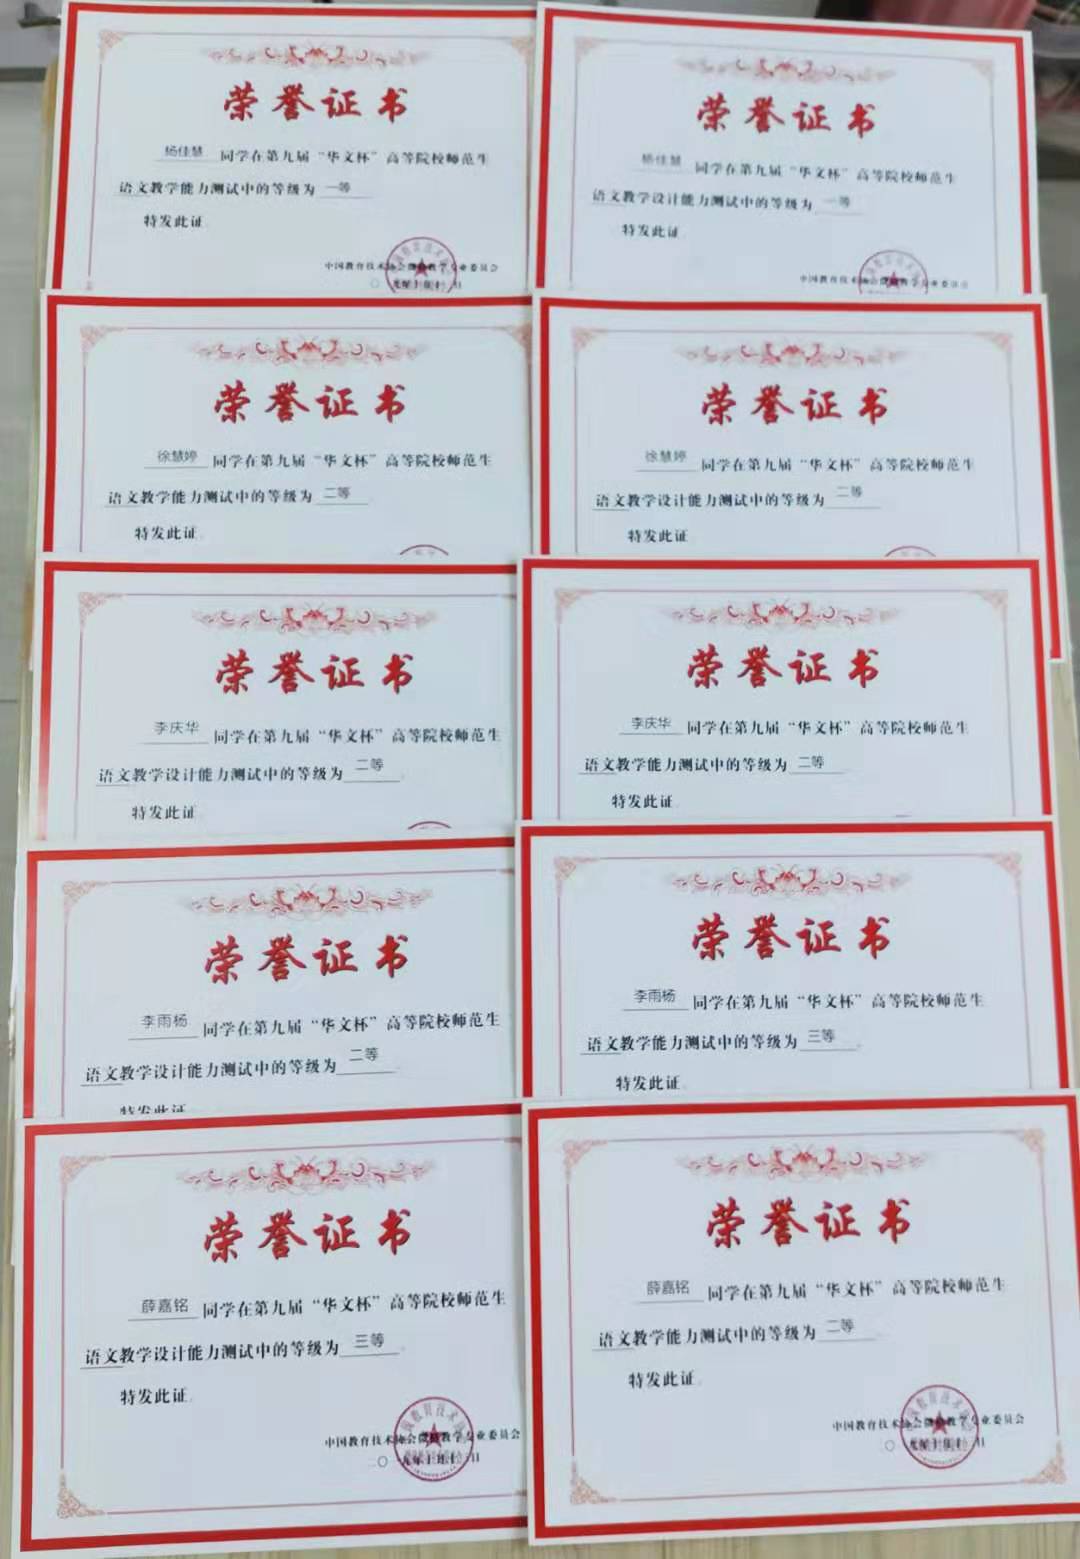 荣誉证书
杨佳慧 同学在第九届“华文杯”高等院校师范生
语文教学能力测试中的等级为 一等
特发此证
中国教育技术协会微格教学专业委员会
荣誉证书
杨佳慧 同学在第九届“华文杯”高等院校师范生
语文教学设计能力测试中的等级为 一等
特发此证
中国教育技术协会微格教学专业委员会
荣誉证书
徐慧婷 同学在第九届“华文杯”高等院校师范生
语文教学能力测试中的等级为 二等
特发此证
荣誉证书
徐慧婷 同学在第九届“华文杯”高等院校师范生
语文教学设计能力测试中的等级为 二等
特发此证
荣誉证书
李庆华 同学在第九届“华文杯”高等院校师范生
语文教学设计能力测试中的等级为 二等
特发此证
荣誉证书
李庆华 同学在第九届“华文杯”高等院校师范生
语文教学能力测试中的等级为 二等
特发此证
荣誉证书
李雨杨 同学在第九届“华文杯”高等院校师范生
语文教学设计能力测试中的等级为 二等
特发此证
荣誉证书
李雨杨 同学在第九届“华文杯”高等院校师范生
语文教学能力测试中的等级为 三等
特发此证
荣誉证书
薛嘉铭 同学在第九届“华文杯”高等院校师范生
语文教学设计能力测试中的等级为 三等
特发此证
中国教育技术协会微格教学专业委员会
荣誉证书
薛嘉铭 同学在第九届“华文杯”高等院校师范生
语文教学能力测试中的等级为 二等
特发此证
中国教育技术协会微格教学专业委员会